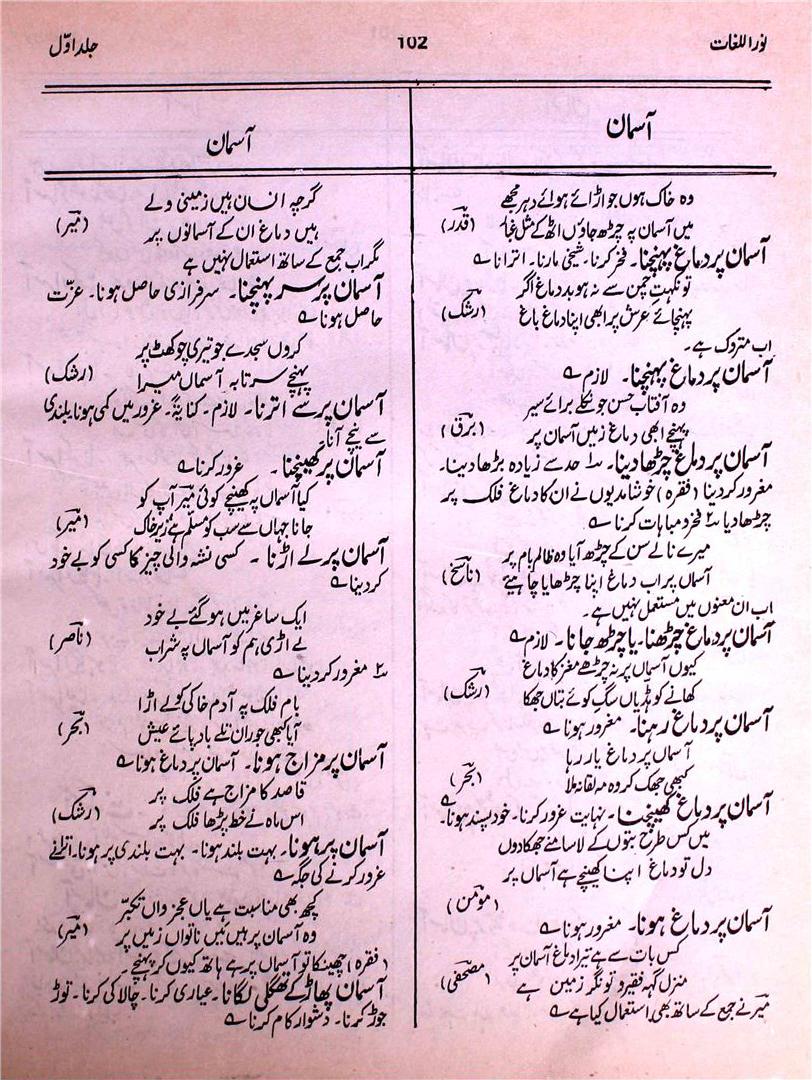 نوراللغات
102
جلد اوّل
آسمان
وہ خاک ہوں جو اڑائے ہوائے دہر مجھے
میں آسمان پہ چڑھ جاؤں اٹھ کے مثل غبار (قدر)
آسمان پر دماغ پہنچنا۔ فخر کرنا۔ شیخی مارنا۔ اترانا ؎
تو نکہتِ چمن سے نہ ہو بددماغ اگر
پہنچائے عرش پر ابھی اپنا دماغ باغ (رشک)
اب متروک ہے۔
آسمان پر دماغ پہنچنا۔ لازم ؎
وہ آفتاب حسن جو نکلے برائے سیر
پہنچے ابھی دماغ زمیں آسمان پر (برق)
آسمان پر دماغ چڑھا دینا۔ ۱؎ حد سے زیادہ بڑھا دینا۔
مغرور کر دینا (فقرہ) خوشامدیوں نے ان کا دماغ فلک پر
چڑھا دیا ۲؎ فخر و مباہات کرنا ؎
میرے نالے سن کے چڑھ آیا وہ ظالم بام پر
آسماں پر اب دماغ اپنا چڑھایا چاہیئے (ناسخ)
اب ان معنوں میں مستعمل نہیں ہے۔
آسمان پر دماغ چڑھنا۔ یا چڑھ جانا۔ لازم ؎
کیوں آسماں پر نہ چڑھے مغز کا دماغ
کھانے کو ہڈیاں سگِ کوئے بتاں جھکا (رشک)
آسمان پر دماغ رہنا۔ مغرور ہونا ؎
آسماں پر دماغ یار رہا
کبھی جھک کر وہ مہ لقا نہ ملا (بحر)
آسمان پر دماغ کھینچنا۔ نہایت غرور کرنا۔ خود پسند ہونا۔ ؎
میں کس طرح بتوں کے لا سامنے جھکا دوں
دل تو دماغ اپنا کھینچے ہے آسماں پر
(مومن)
آسمان پر دماغ ہونا۔ مغرور ہونا ؎
کس بات سے ہے تیرا دماغ آسمان پر
منزل گہہ فقیر و تونگر زمین ہے (مصحفی)
میر نے جمع کے ساتھ بھی استعمال کیا ہے ؎
آسمان
گرچہ انسان ہیں زمینی ولے
ہیں دماغ ان کے آسمانوں پر (میر)
مگر اب جمع کے ساتھ استعمال نہیں ہے
آسمان پر سر پہنچنا۔ سرفرازی حاصل ہونا۔ عزّت
حاصل ہونا ؎
کروں سجدے جو تیری چوکھٹ پر
پہنچے سر تا بہ آسماں میرا (رشک)
آسمان پر سے اترنا۔ لازم۔ کنایۃً۔ غرور میں کمی ہونا بلندی
سے نیچے آنا۔
آسمان پر کھینچنا۔ غرور کرنا ؎
کیا آسماں پہ کھینچے کوئی میر آپ کو
جانا جہاں سے سب کو مسلم ہے زیرِ خاک (میر)
آسمان پر لے اڑنا۔ کسی نشہ والی چیز کا کسی کو بے خود
کر دینا ؎
ایک ساغر میں ہو گئے بے خود
لے اڑی ہم کو آسماں پہ شراب (ناصر)
۲؎ مغرور کر دینا ؎
بام فلک پہ آدم خاکی کو لے اڑا
آیا کبھی جو ران تلے بادپائے عیش (بحر)
آسمان پر مزاج ہونا۔ آسمان پر دماغ ہونا ؎
قاصد کا مزاج ہے فلک پر
اس ماہ نے خط پڑھا فلک پر (رشک)
آسمان پر ہونا۔ بہت بلند ہونا۔ بہت بلندی پر ہونا۔ اترانے
غرور کرنے کی جگہ ؎
کچھ بھی مناسبت ہے یاں عجز واں تکبّر
وہ آسمان پر ہیں میں ناتواں زمیں پر (میر)
(فقرہ) چھینکا تو آسماں پر ہے ہاتھ کیوں کر پہنچے۔
آسمان پھاڑ کے تھگلی لگانا۔ عیاری کرنا۔ چالاکی کرنا۔ توڑ
جوڑ کرنا۔ دشوار کام کرنا ؎